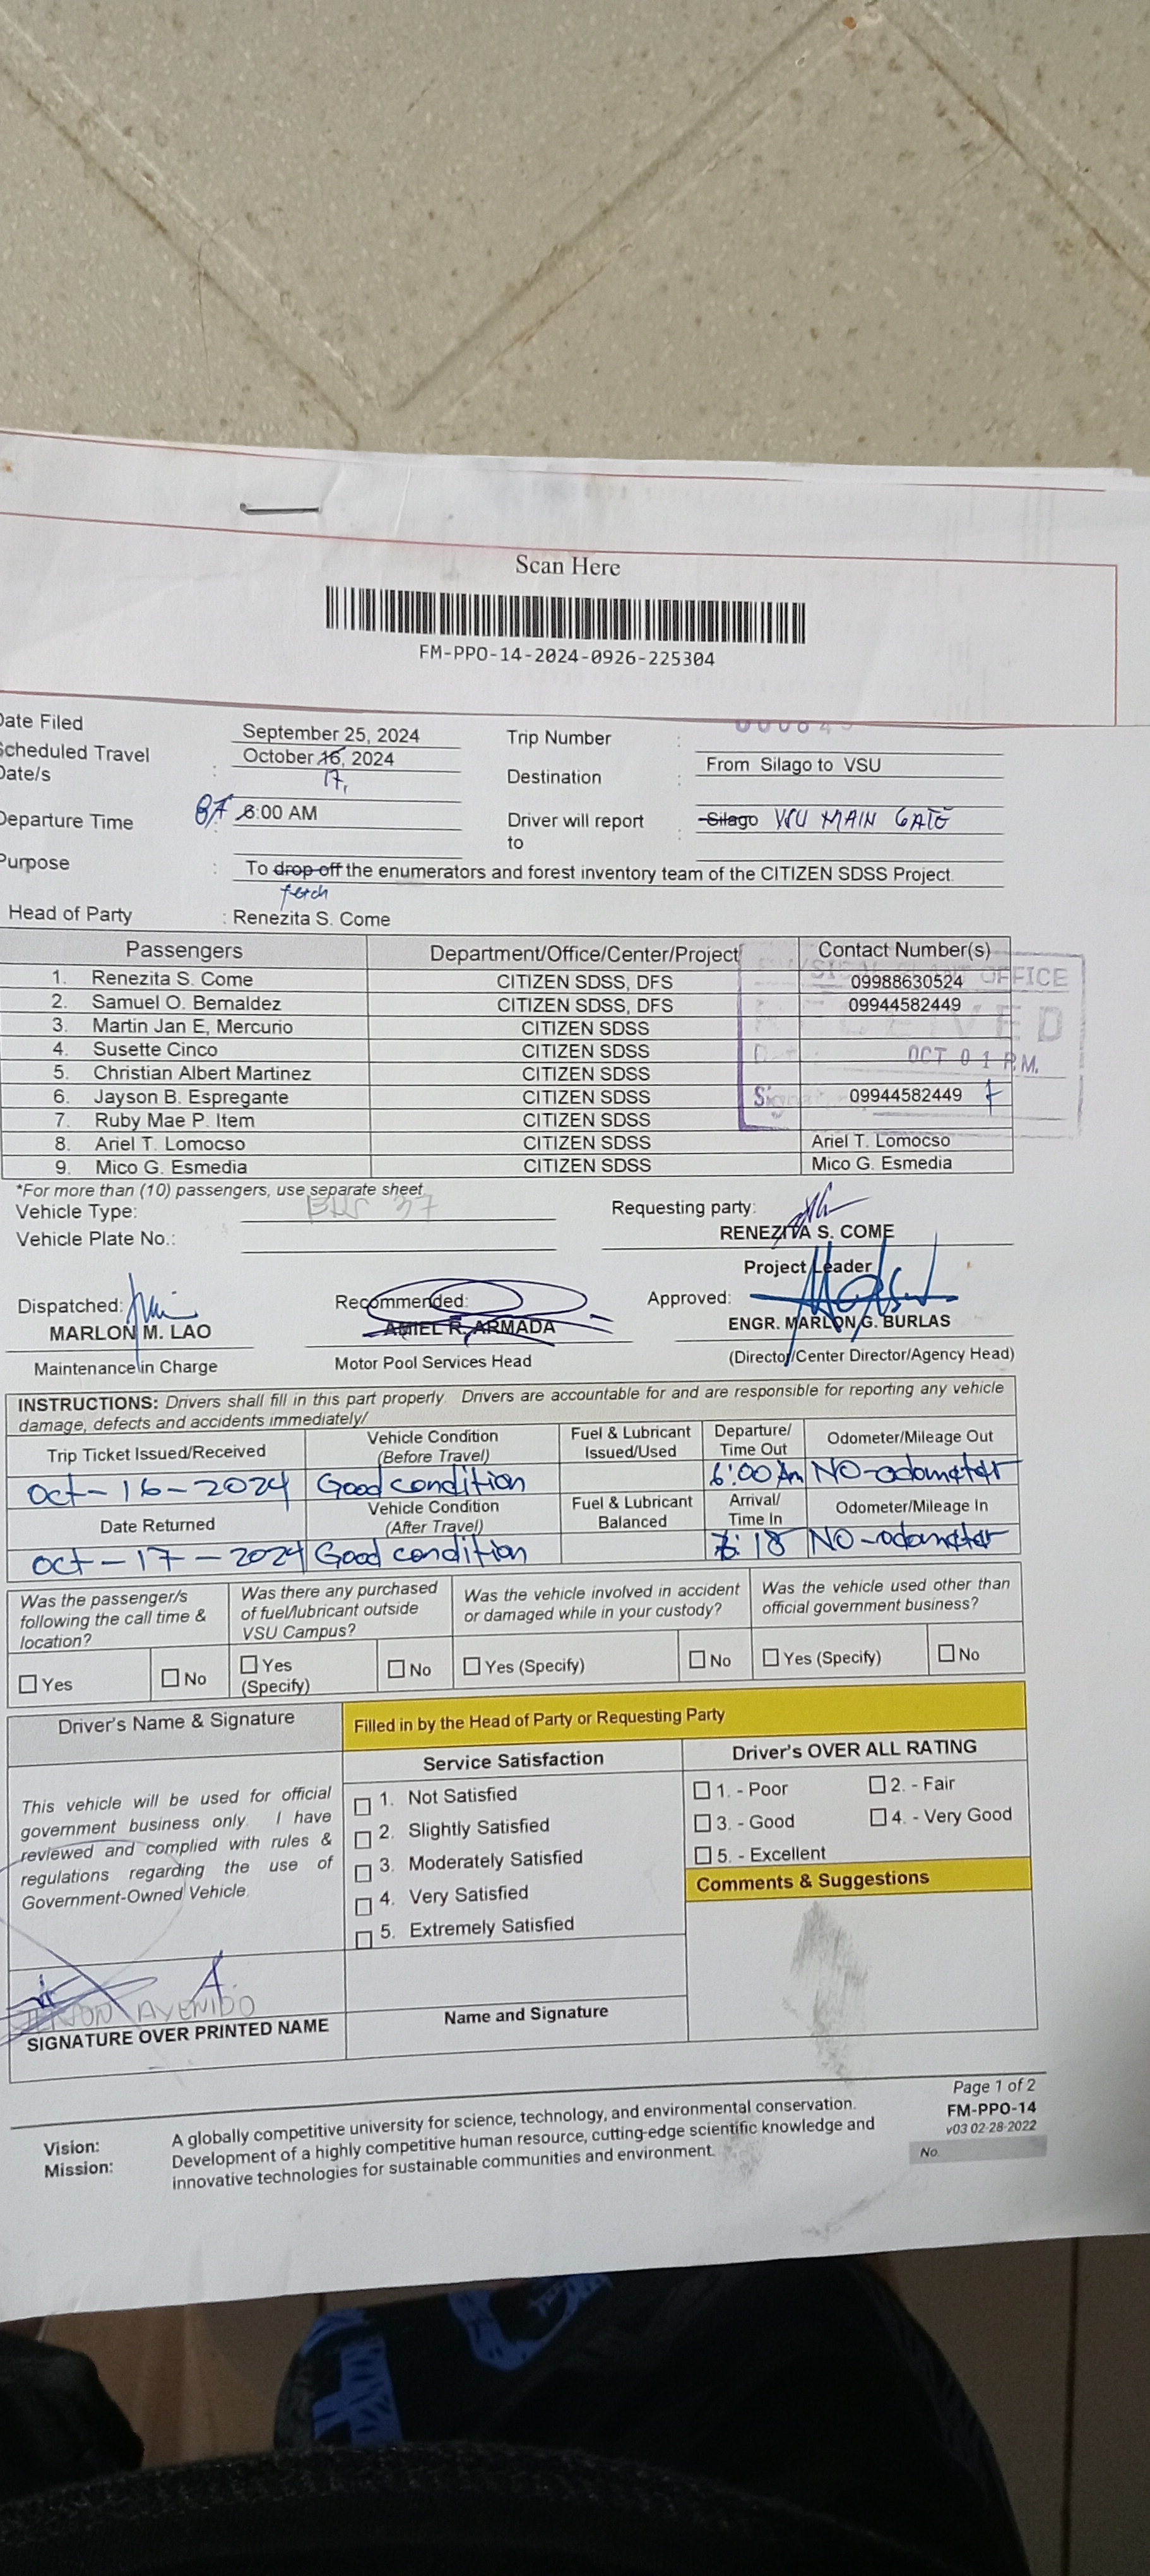 Scan Here
FM-PPO-14-2024-0926-225304
Date Filed September 25, 2024 Trip Number :
Scheduled Travel Date/s : October 16, 2024 17, Destination : From Silago to VSU
Departure Time 6:00 AM Driver will report to : Silago VSU MAIN GATE
Purpose : To drop off the enumerators and forest inventory team of the CITIZEN SDSS Project.
fetch
Head of Party : Renezita S. Come
Passengers Department/Office/Center/Project Contact Number(s)
1. Renezita S. Come CITIZEN SDSS, DFS 09988630524
2. Samuel O. Bernaldez CITIZEN SDSS, DFS 09944582449
3. Martin Jan E, Mercurio CITIZEN SDSS
4. Susette Cinco CITIZEN SDSS
5. Christian Albert Martinez CITIZEN SDSS
6. Jayson B. Espregante CITIZEN SDSS 09944582449
7. Ruby Mae P. Item CITIZEN SDSS
8. Ariel T. Lomocso CITIZEN SDSS Ariel T. Lomocso
9. Mico G. Esmedia CITIZEN SDSS Mico G. Esmedia
PHYSICAL PLANT OFFICE
RECEIVED
OCT 0 1 P.M.
*For more than (10) passengers, use separate sheet
Vehicle Type: BUS 37 Requesting party:
Vehicle Plate No.: RENEZITA S. COME
Project Leader
Dispatched: Recommended: Approved:
MARLON M. LAO AMIEL R. ARMADA ENGR. MARLON G. BURLAS
Maintenance in Charge Motor Pool Services Head (Director/Center Director/Agency Head)
INSTRUCTIONS: Drivers shall fill in this part properly. Drivers are accountable for and are responsible for reporting any vehicle
damage, defects and accidents immediately/
Trip Ticket Issued/Received Vehicle Condition (Before Travel) Fuel & Lubricant Issued/Used Departure/ Time Out Odometer/Mileage Out
Oct-16-2024 Good condition 6:00 Am NO-odometer
Date Returned Vehicle Condition (After Travel) Fuel & Lubricant Balanced Arrival/ Time In Odometer/Mileage In
Oct-17-2024 Good condition 18 NO-odometer
Was the passenger/s following the call time & location? Was there any purchased of fuel/lubricant outside VSU Campus? Was the vehicle involved in accident or damaged while in your custody? Was the vehicle used other than official government business?
Yes No Yes (Specify) No Yes (Specify) No Yes (Specify) No
Driver's Name & Signature Filled in by the Head of Party or Requesting Party
Service Satisfaction Driver's OVER ALL RATING
This vehicle will be used for official
government business only. I have
reviewed and complied with rules &
regulations regarding the use of
Government-Owned Vehicle.
1. Not Satisfied
2. Slightly Satisfied
3. Moderately Satisfied
4. Very Satisfied
5. Extremely Satisfied
1. - Poor 2. - Fair
3. - Good 4. - Very Good
5. - Excellent
Comments & Suggestions
AVENIDO
SIGNATURE OVER PRINTED NAME Name and Signature
Page 1 of 2
FM-PPO-14
v03 02-28-2022
No.
Vision: A globally competitive university for science, technology, and environmental conservation.
Mission: Development of a highly competitive human resource, cutting-edge scientific knowledge and
innovative technologies for sustainable communities and environment.